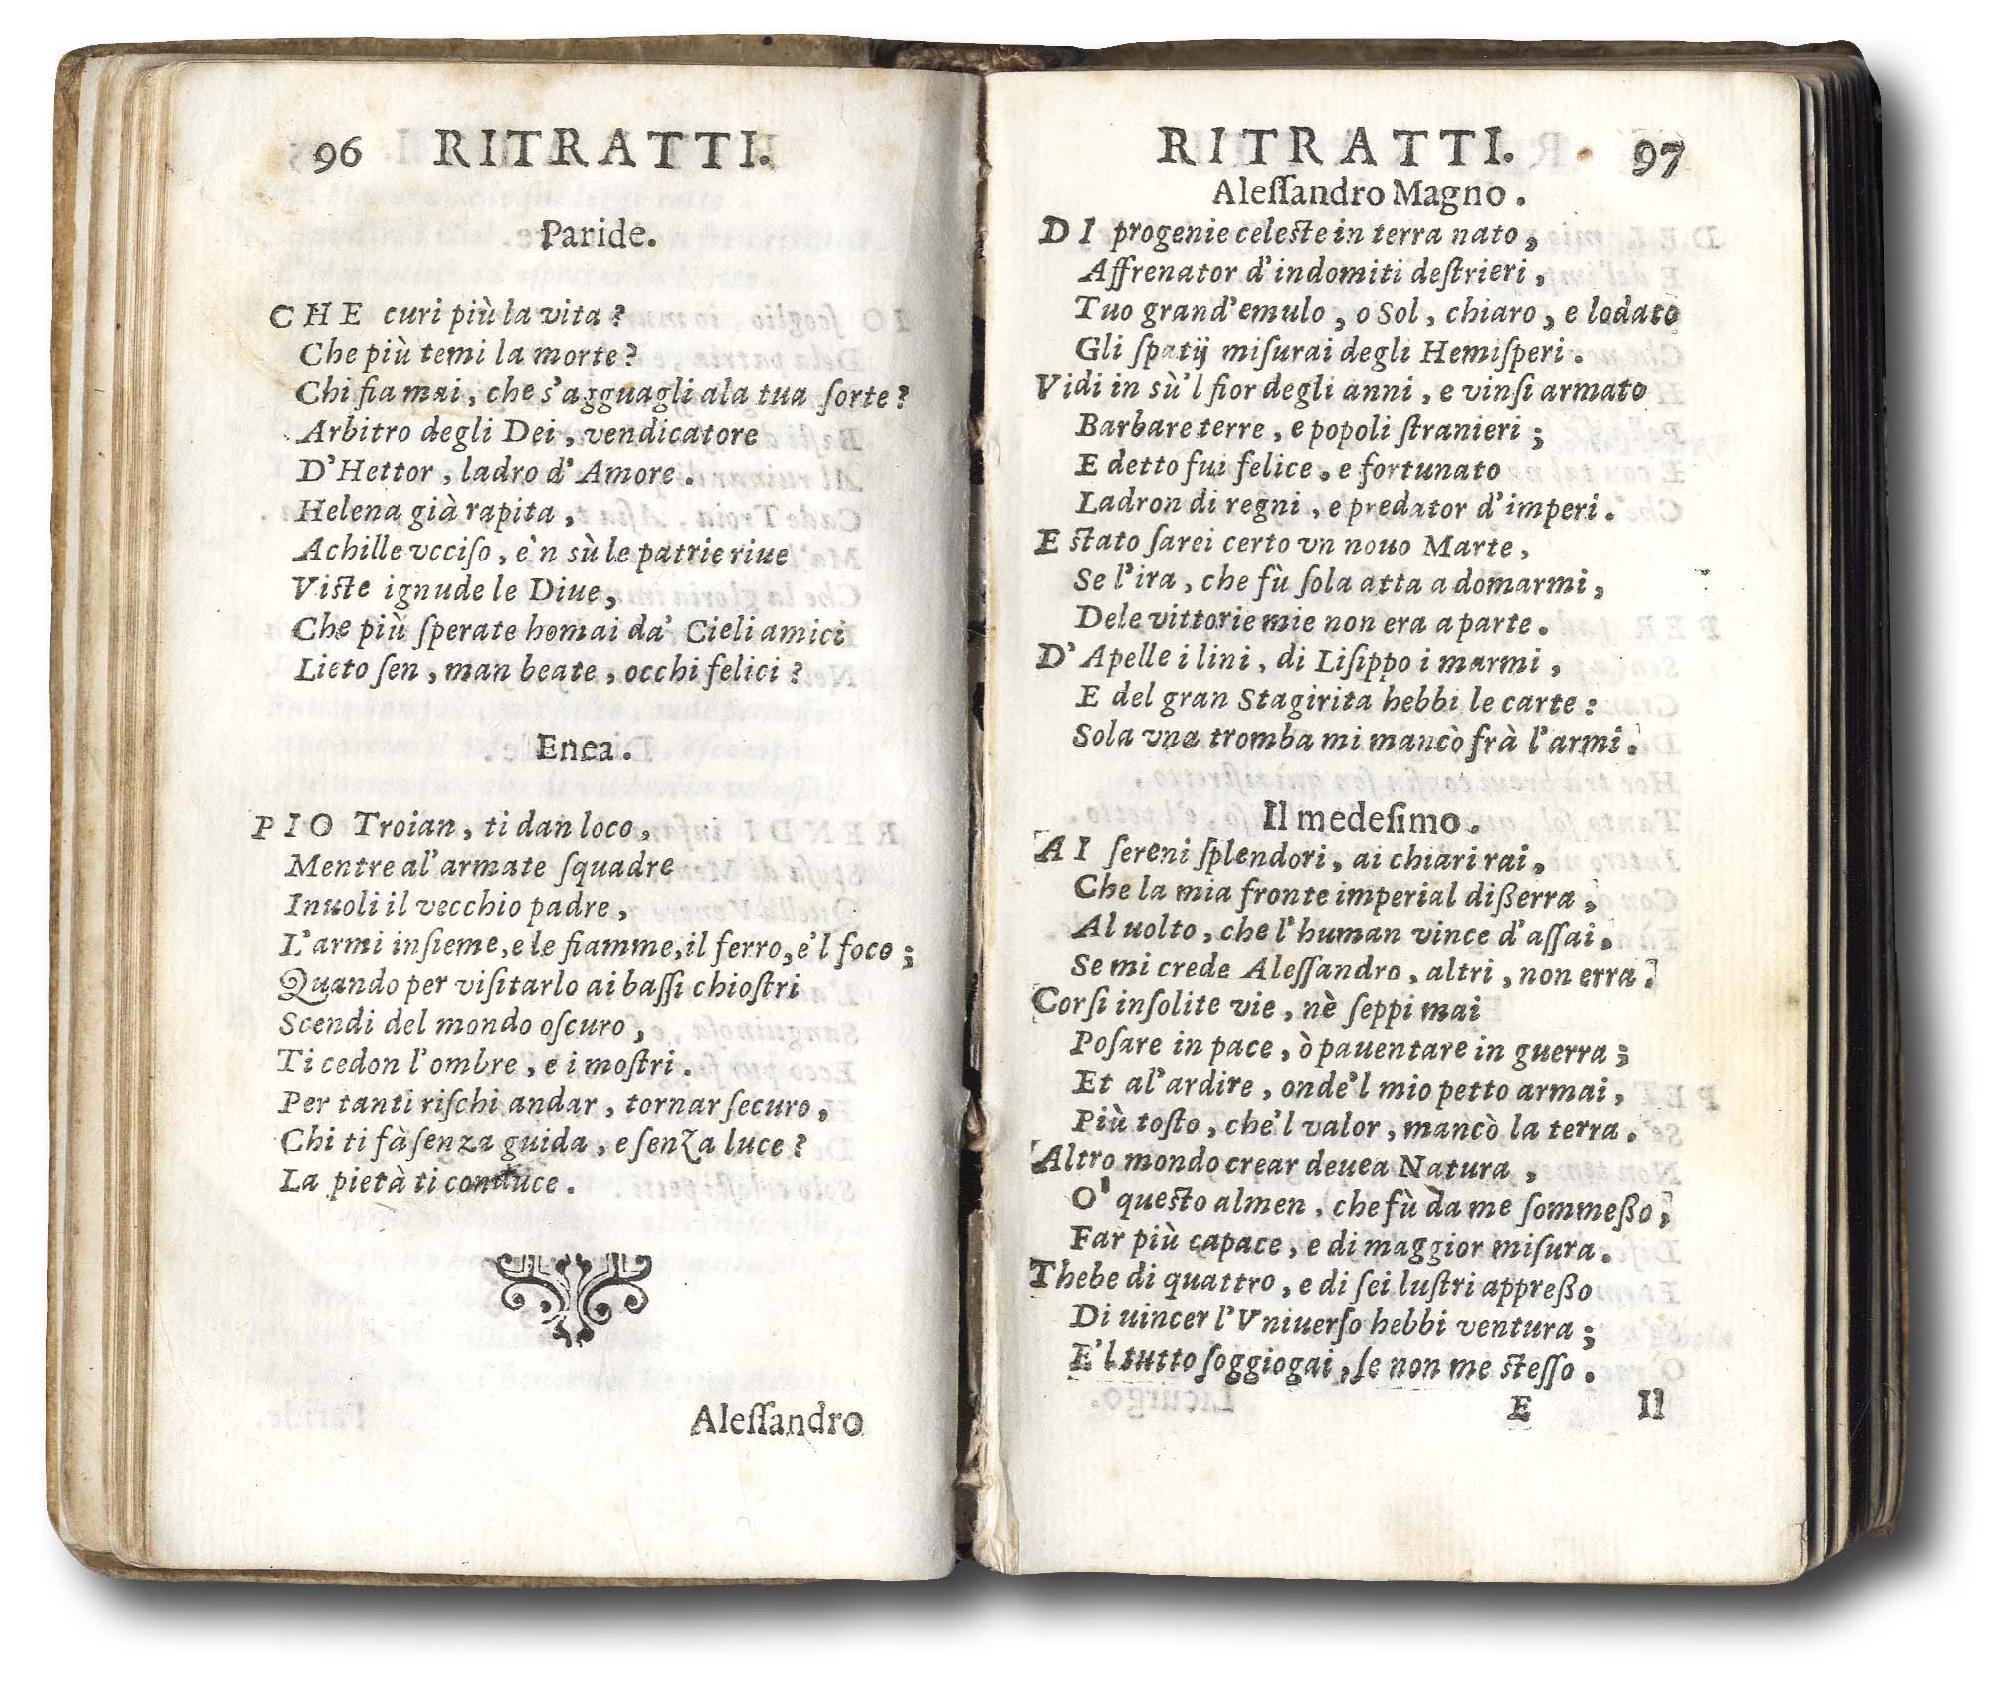 96 RITRATTI.
Paride.
CHE curi più la vita?
Che più temi la morte?
Chi fia mai, che s'agguagli ala tua ſorte?
Arbitro degli Dei, vendicatore
D'Hettor, ladro d'Amore.
Helena già rapita,
Achille vcciſo, e'n sù le patrie riue
Viste ignude le Diue,
Che più ſperate homai da' Cieli amici
Lieto ſen, man beate, occhi felici?
Enea.
PIO Troian, ti dan loco,
Mentre al'armate ſquadre
Inuoli il vecchio padre,
L'armi inſieme, e le fiamme, il ferro, e'l foco;
Quando per viſitarlo ai baſſi chioſtri
Scendi del mondo oſcuro,
Ti cedon l'ombre, e i moſtri.
Per tanti riſchi andar, tornar ſecuro,
Chi ti fà ſenza guida, e ſenza luce?
La pietà ti conduce.
Aleſſandro
RITRATTI. 97
Aleſſandro Magno.
DI progenie celeste in terra nato,
Affrenator d'indomiti deſtrieri,
Tuo grand'emulo, o Sol, chiaro, e lodato
Gli ſpatij miſurai degli Hemiſperi.
Vidi in sù'l fior degli anni, e vinſi armato
Barbare terre, e popoli ſtranieri;
E detto fui felice, e fortunato
Ladron di regni, e predator d'imperi.
E stato ſarei certo vn nouo Marte,
Se l'ira, che fù ſola atta a domarmi,
Dele vittorie mie non era a parte.
D'Apelle i lini, di Liſippo i marmi,
E del gran Stagirita hebbi le carte:
Sola vna tromba mi mancò frà l'armi.
Il medeſimo.
AI ſereni ſplendori, ai chiari rai,
Che la mia fronte imperial dißerra,
Al uolto, che l'human vince d'aſſai,
Se mi crede Aleſſandro, altri, non erra.
Corſi inſolite vie, nè ſeppi mai
Poſare in pace, ò pauentare in guerra;
Et al'ardire, onde'l mio petto armai,
Più toſto, che'l valor, mancò la terra.
Altro mondo crear deuea Natura,
O' questo almen, che fù da me ſommeßo,
Far più capace, e di maggior miſura.
Thebe di quattro, e di ſei luſtri appreßo
Di uincer l'Vniuerſo hebbi ventura;
E'l tutto ſoggiogai, ſe non me steſſo.
E Il